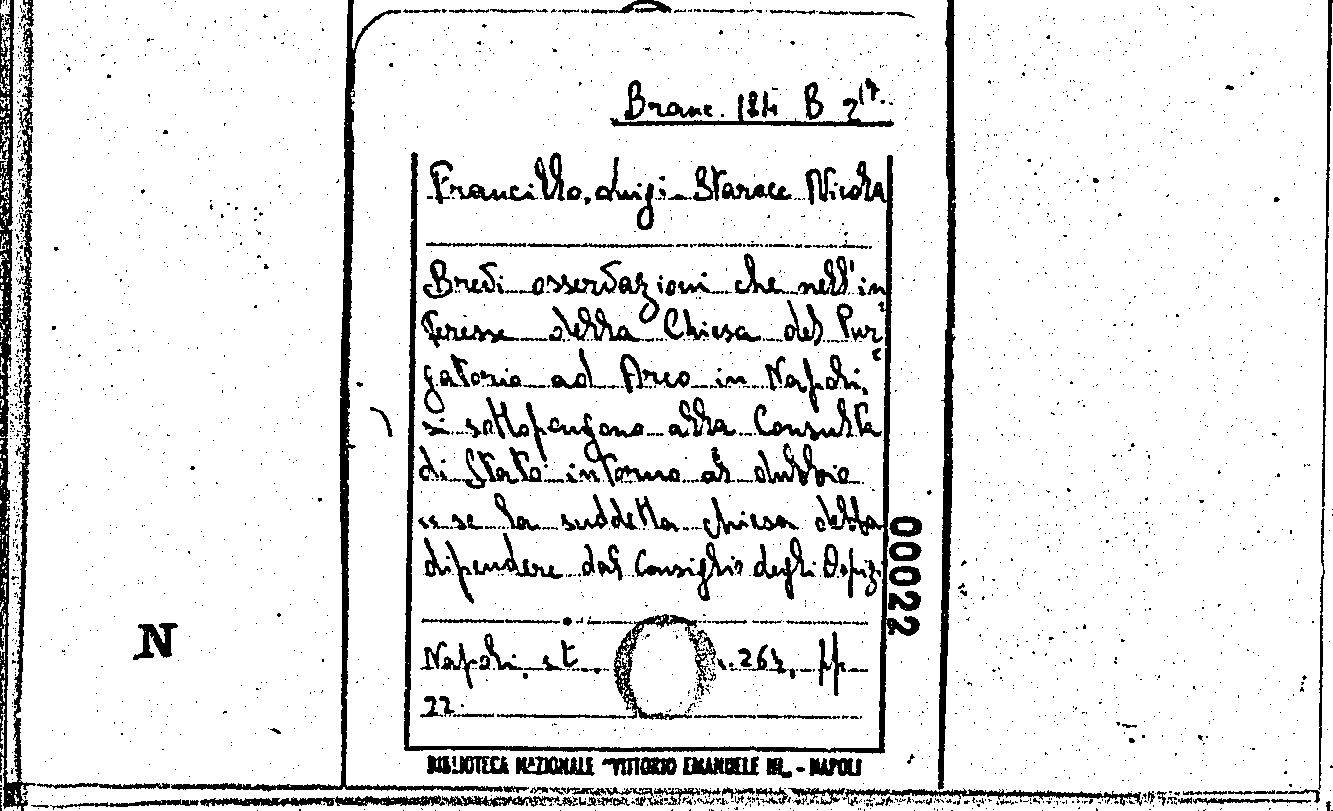 Branc. 184 B 2 17.
Francillo, Luigi - Starace Nicola
Brevi osservazioni che nell'in
teresse della Chiesa del Pur
gatorio ad Arco in Napoli,
si sottopongono alla Consulta
di Stato intorno al dubbio
« se la suddetta chiesa debba
dipendere dal Consiglio degli Ospizi
00022
N
Napoli, s. t. 26 pp.
22.
BIBLIOTECA NAZIONALE "VITTORIO EMANUELE III" - NAPOLI